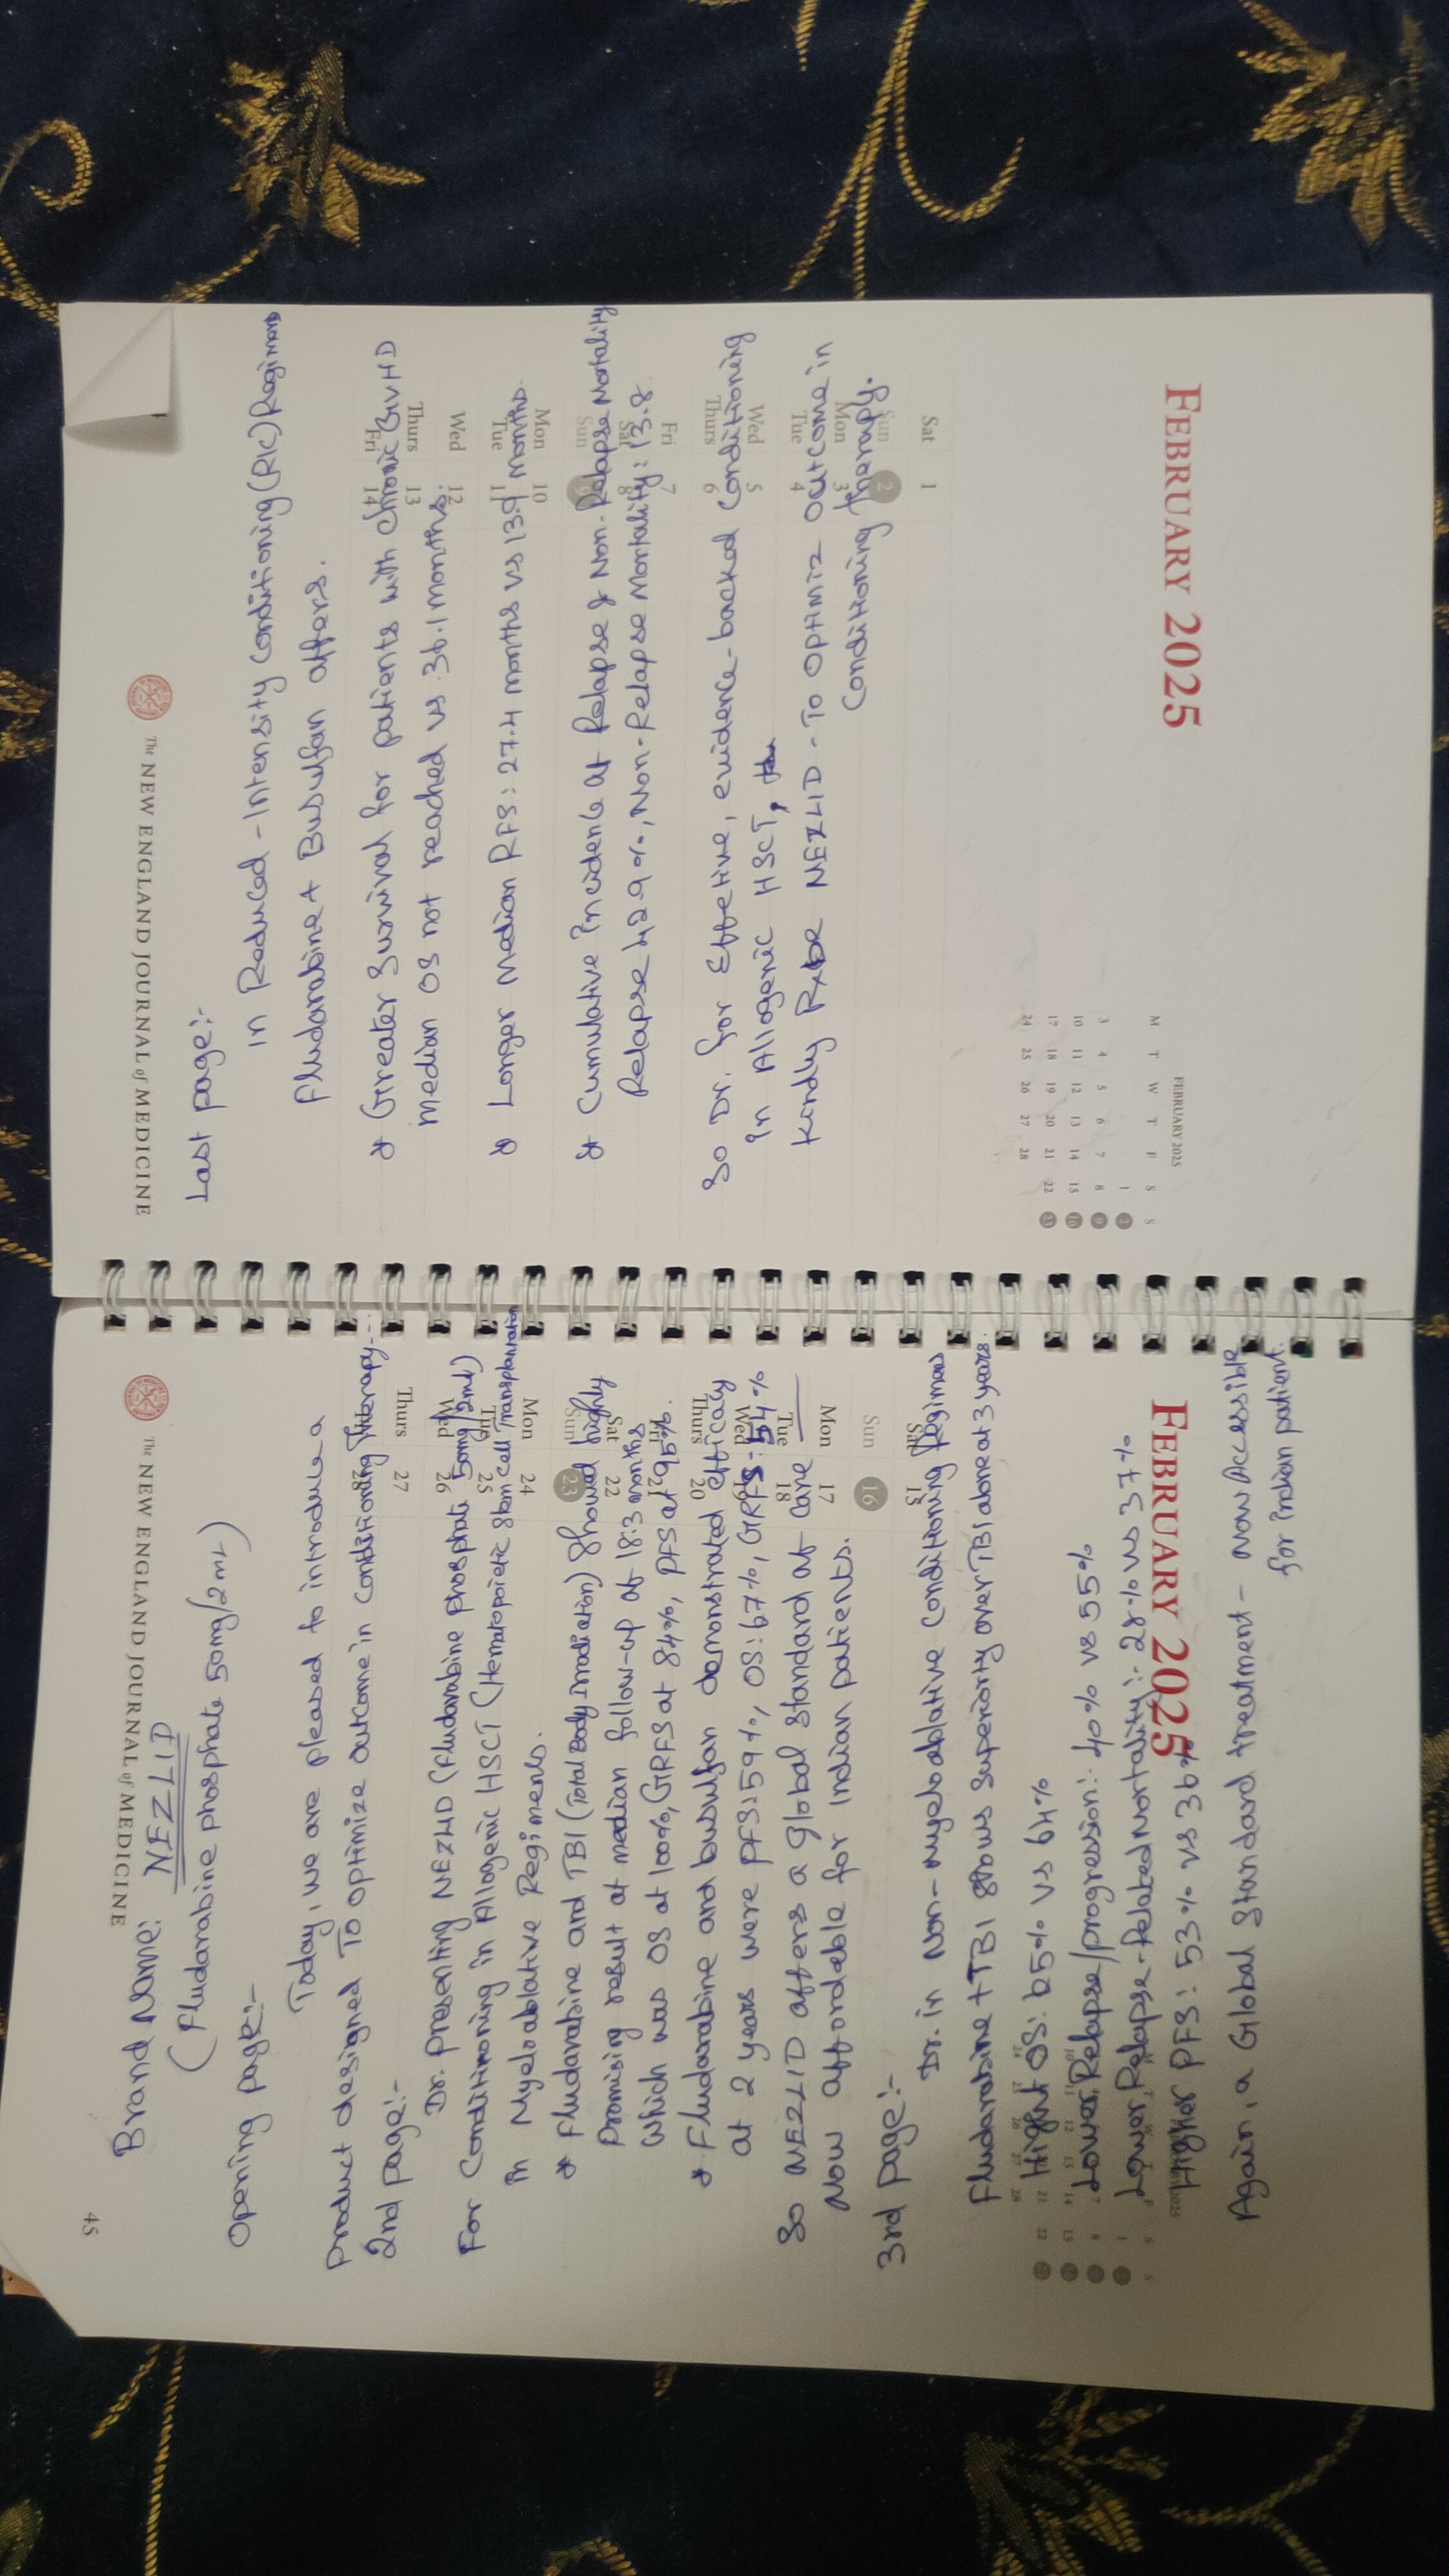 45
The NEW ENGLAND JOURNAL of MEDICINE
Brand Name: NEZLID
(Fludarabine phosphate 50mg/2ml)
Opening page:-
Today, we are pleased to introduce a
product designed To optimize outcome in Conditioning Therapy---
2nd page:-
Dr. presenting NEZLID (Fludarabine phosphate 50mg/2ml)
For Conditioning in Allogenic HSCT (Hematopoietic Stem Cell Transplantation
in Myeloablative Regimens.
* Fludarabine and TBI (Total Body Irradiation) showed highly
Promising result at median follow-up of 18.3 months
Which was OS at 100%, GRFS at 84%, PFS at 95%.
* Fludarabine and busulfan demonstrated efficacy
at 2 years were PFS: 59%, OS: 67%, GRFS: 54%
So NEZLID offers a global standard of care
Now affordable for Indian patients.
3rd page:-
Dr. in Non-Myeloablative Conditioning Regimens
Fludarabine + TBI Shows Superiority over TBI alone at 3 years.
Highest OS: 65% VS 64%
Lower Relapse/progression:- 40% vs 55%
Lower Relapse-Related Mortality:- 28% vs 37%
Higher PFS: 53% vs 36%
Again, a Global Standard treatment - Now Accessible
for Indian patient.
FEBRUARY 2025
Sat 15
Sun 16
Mon 17
Tue 18
Wed 19
Thurs 20
Fri 21
Sat 22
Sun 23
Mon 24
Tue 25
Wed 26
Thurs 27
28
The NEW ENGLAND JOURNAL of MEDICINE
Last page:-
In Reduced-Intensity Conditioning (RIC) Regimens
Fludarabine + Busulfan offers.
* Greater Survival for patients with chronic GVHD
Median OS not reached vs 36.1 months.
* Longer Median RFS: 27.4 months vs 13.9 months.
* Cumulative Incidence of Relapse & Non-Relapse Mortality
Relapse 42.9%, Non-Relapse Mortality: 13.8.
So Dr. for Effective, evidence-backed Conditioning
in Allogenic HSCT,
Kindly NEZLID - To Optimiz Outcome in
Conditioning Therapy.
Sat 1
Sun 2
Mon 3
Tue 4
Wed 5
Thurs 6
Fri 7
Sat 8
Sun 9
Mon 10
Tue 11
Wed 12
Thurs 13
Fri 14
FEBRUARY 2025
FEBRUARY 2025
M T W T F S S
1 2
3 4 5 6 7 8 9
10 11 12 13 14 15 16
17 18 19 20 21 22 23
24 25 26 27 28